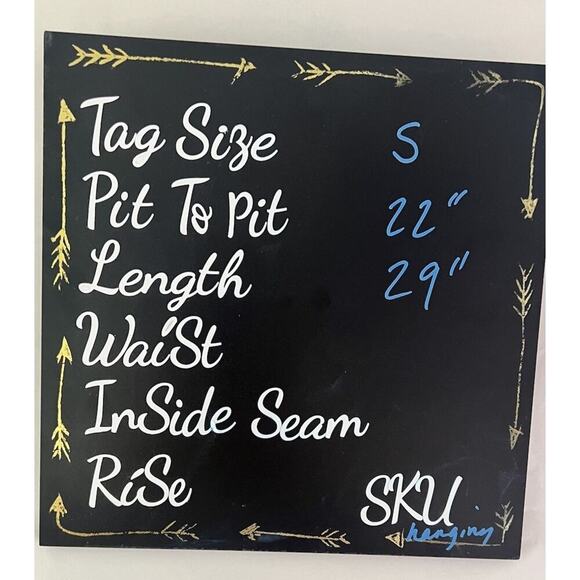 Tag Size S
Pit To Pit 22"
Length 29"
Waist
Inside Seam
Rise
SKU
hanging